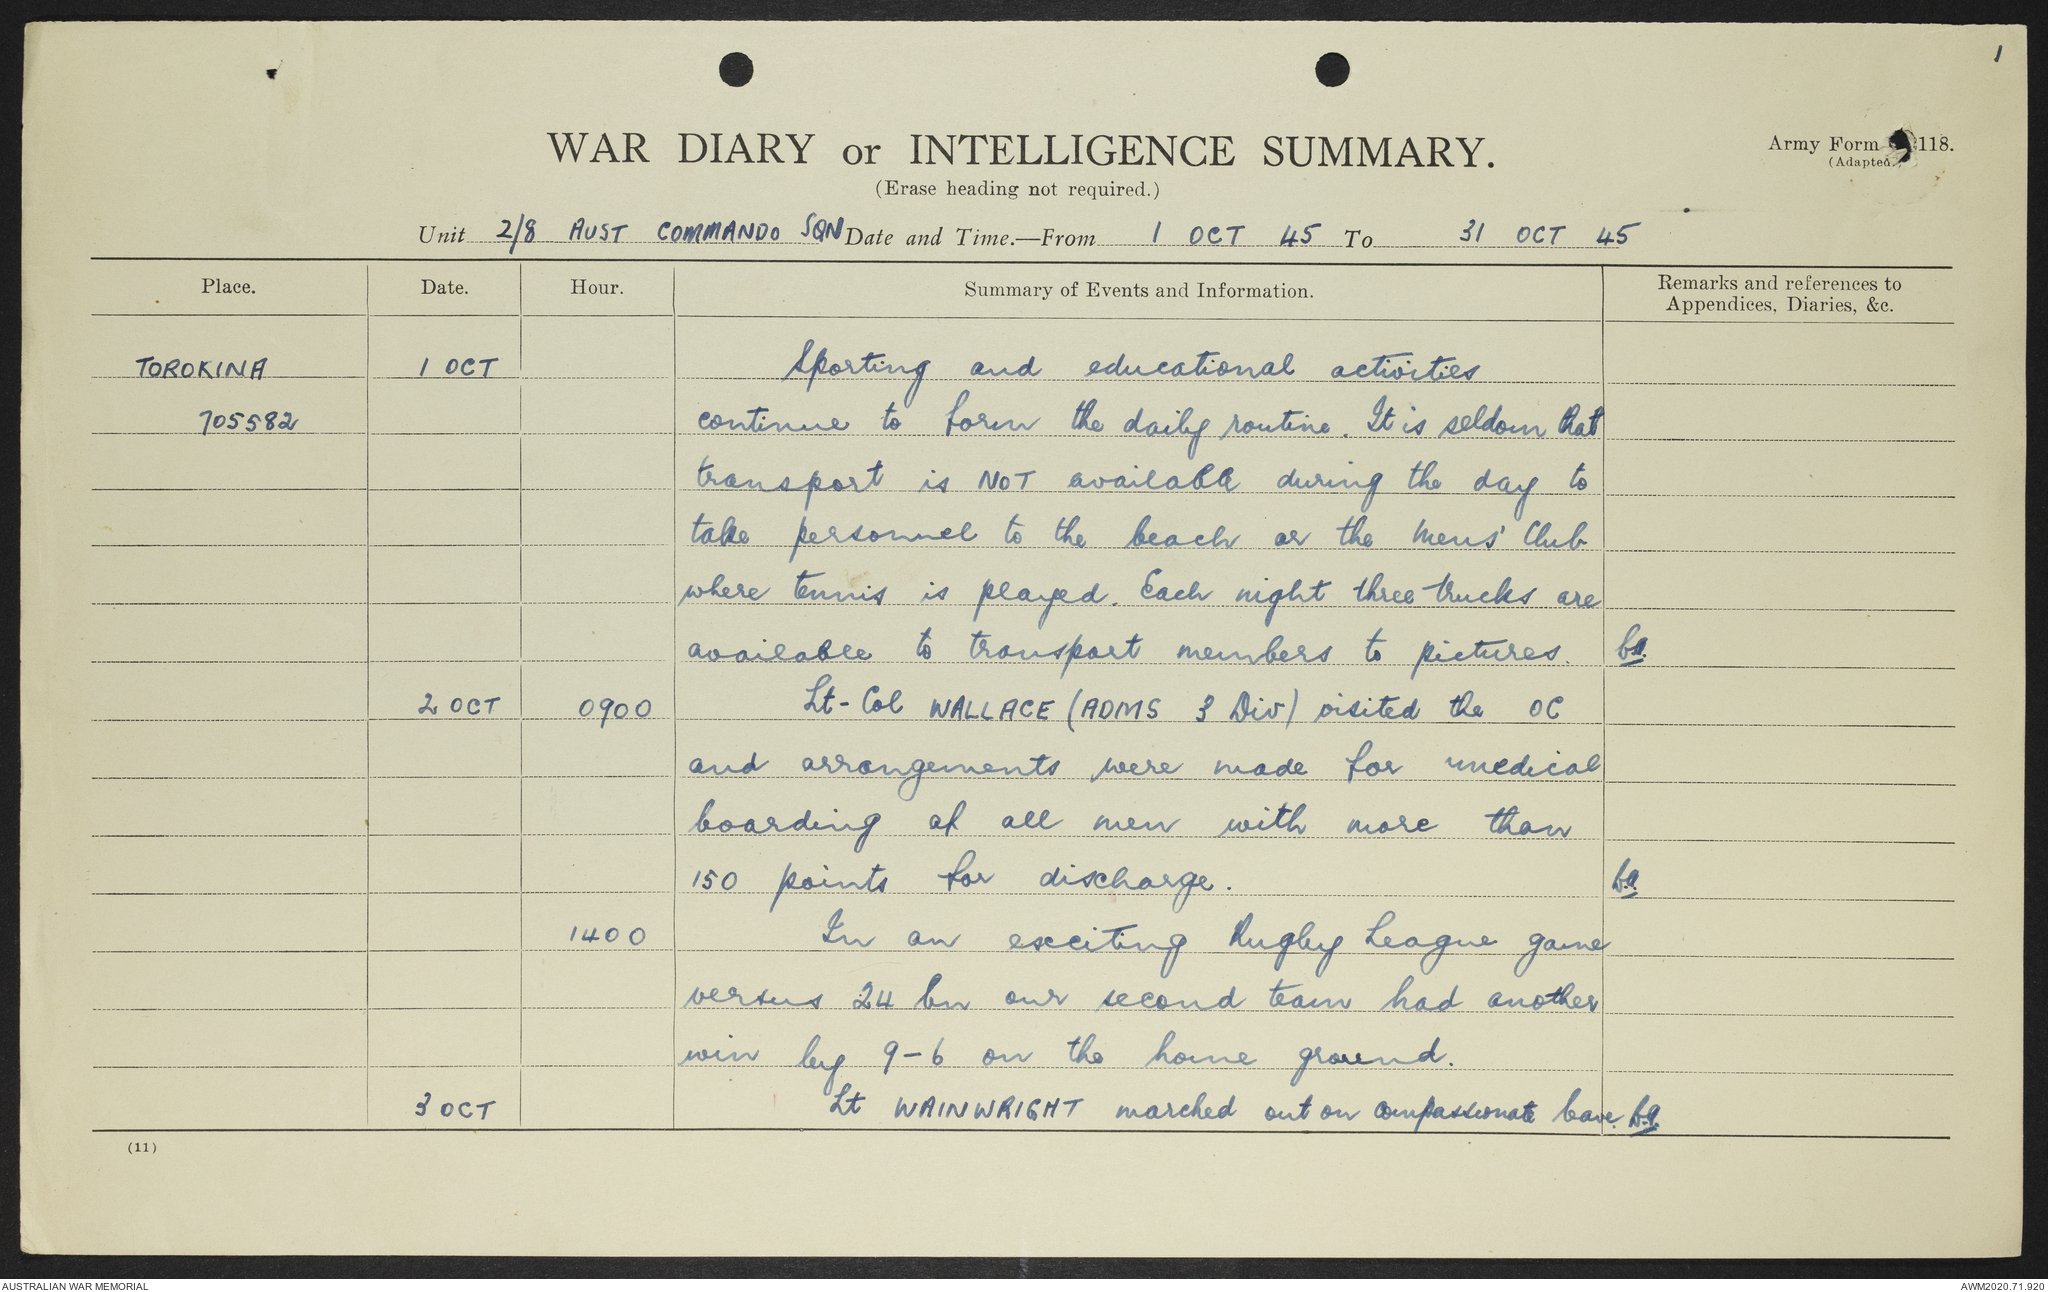 1
WAR DIARY or INTELLIGENCE SUMMARY.
Army Form 118.
(Adapted.)
(Erase heading not required.)
Unit 2/8 AUST COMMANDO SQN Date and Time.—From 1 OCT 45 To 31 OCT 45
Place. Date. Hour. Summary of Events and Information. Remarks and references to
Appendices, Diaries, &c.
TOROKINA 1 OCT Sporting and educational activities
705582 continue to form the daily routine. It is seldom that
transport is NOT available during the day to
take personnel to the beach or the Mens' Club
where tennis is played. Each night three trucks are
available to transport members to pictures.
2 OCT 0900 Lt-Col WALLACE (ADMS 3 Div) visited the OC
and arrangements were made for medical
boarding of all men with more than
150 points for discharge.
1400 In an exciting Rugby League game
versus 24 bn our second team had another
win by 9-6 on the home ground.
3 OCT Lt WAINWRIGHT marched out on compassionate leave.
(11)
AUSTRALIAN WAR MEMORIAL
AWM2020.71.920